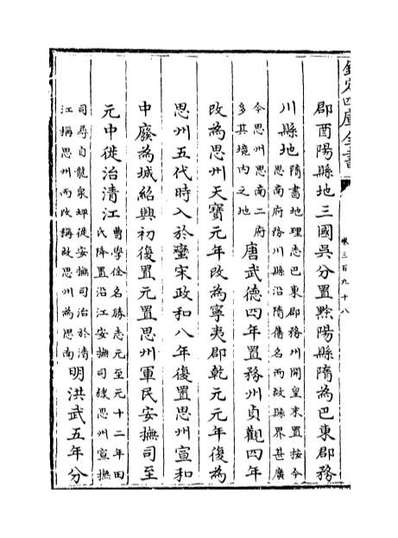 欽定四庫全書
卷三百九十八
郡酉陽縣地三國吳分置黔陽縣隋為巴東郡務
川縣地隋書地理志巴東郡務川開皇末置按今
思南府務川縣沿隋舊名而故縣界甚廣
今思州思南二府
多其境內之地唐武德四年置務州貞觀四年
改為思州天寶元年改為寧夷郡乾元元年復為
思州五代時入於蠻宋政和八年復置思州宣和
中廢為城紹興初復置元置思州軍民安撫司至
元中徙治清江曹學佺名勝志元至元十二年田
氏降置沿江安撫司後思州宣撫
司尋自龍泉坪徙安撫司治於清
江搆思州而改搆故思州為思南明洪武五年分